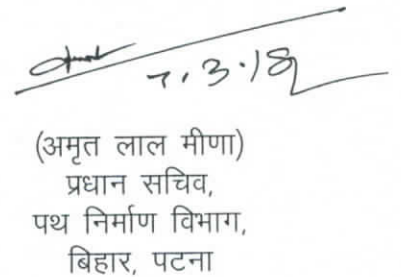 7.3.18
(अमृत लाल मीणा)
प्रधान सचिव,
पथ निर्माण विभाग,
बिहार, पटना